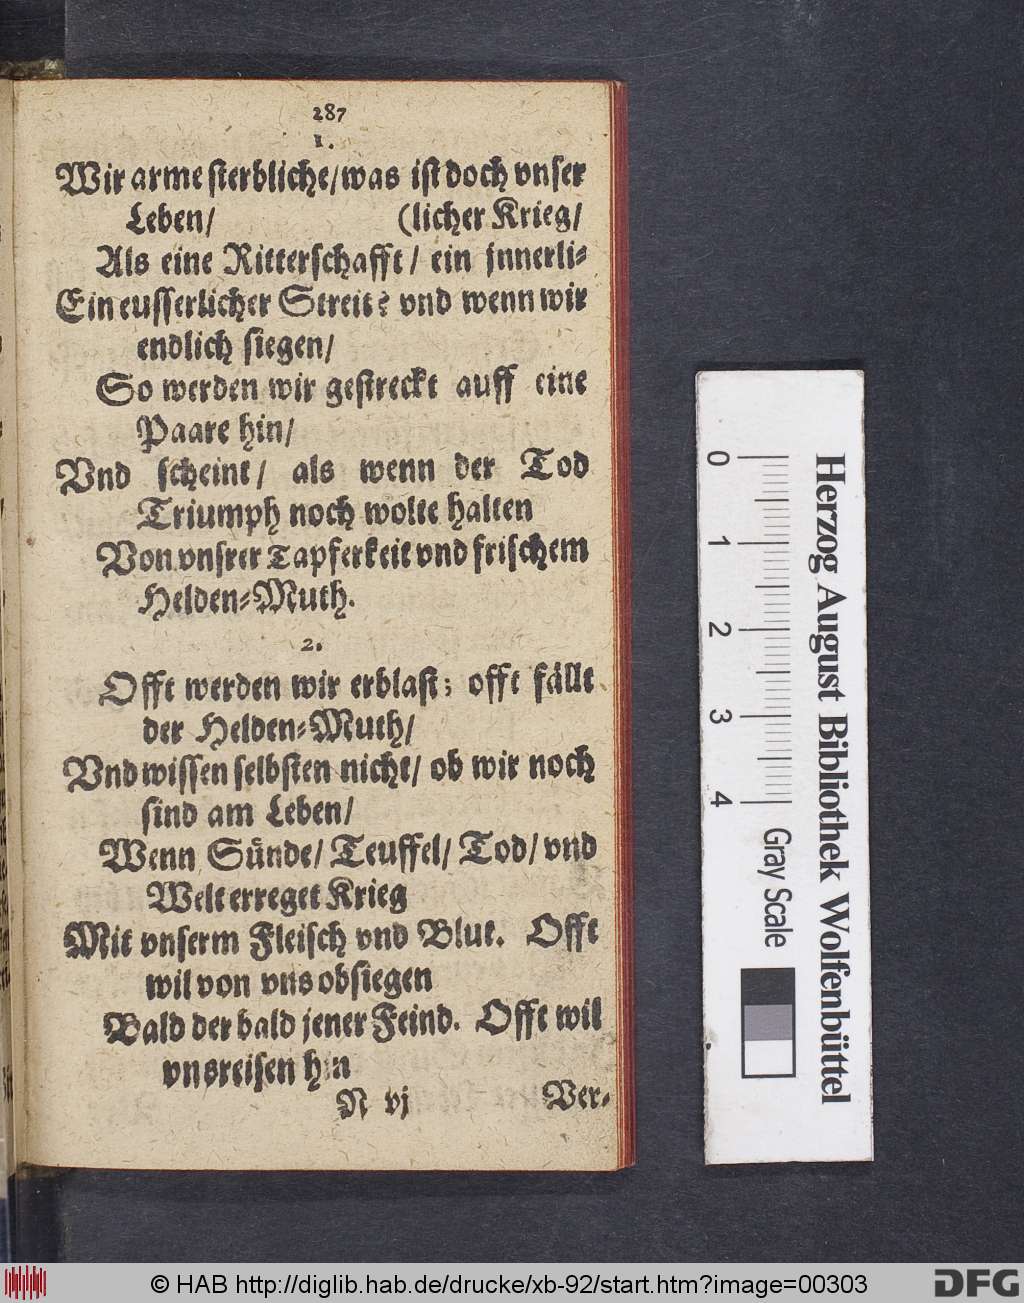 287
1.
Wir arme sterbliche/was ist doch vnser
Leben/ (licher Krieg/
Als eine Ritterschafft/ ein jnnerli-
Ein eusserlicher Streit? vnd wenn wir
endlich siegen/
So werden wir gestreckt auff eine
Paare hin/
Vnd scheint/ als wenn der Tod
Triumph noch wolte halten
Von vnsrer Tapferkeit vnd frischem
Helden-Muth.
2.
Offt werden wir erblast; offt fällt
der Helden-Muth/
Vnd wissen selbsten nicht/ ob wir noch
sind am Leben/
Wenn Sünde/ Teuffel/ Tod/ vnd
Welt erreget Krieg
Mit vnserm Fleisch vnd Blut. Offt
wil von vns obsiegen
Bald der bald jener Feind. Offt wil
vns reisen hin
N vj Ver-
0 1 2 3 4
Gray Scale
Herzog August Bibliothek Wolfenbüttel
© HAB http://diglib.hab.de/drucke/xb-92/start.htm?image=00303
DFG